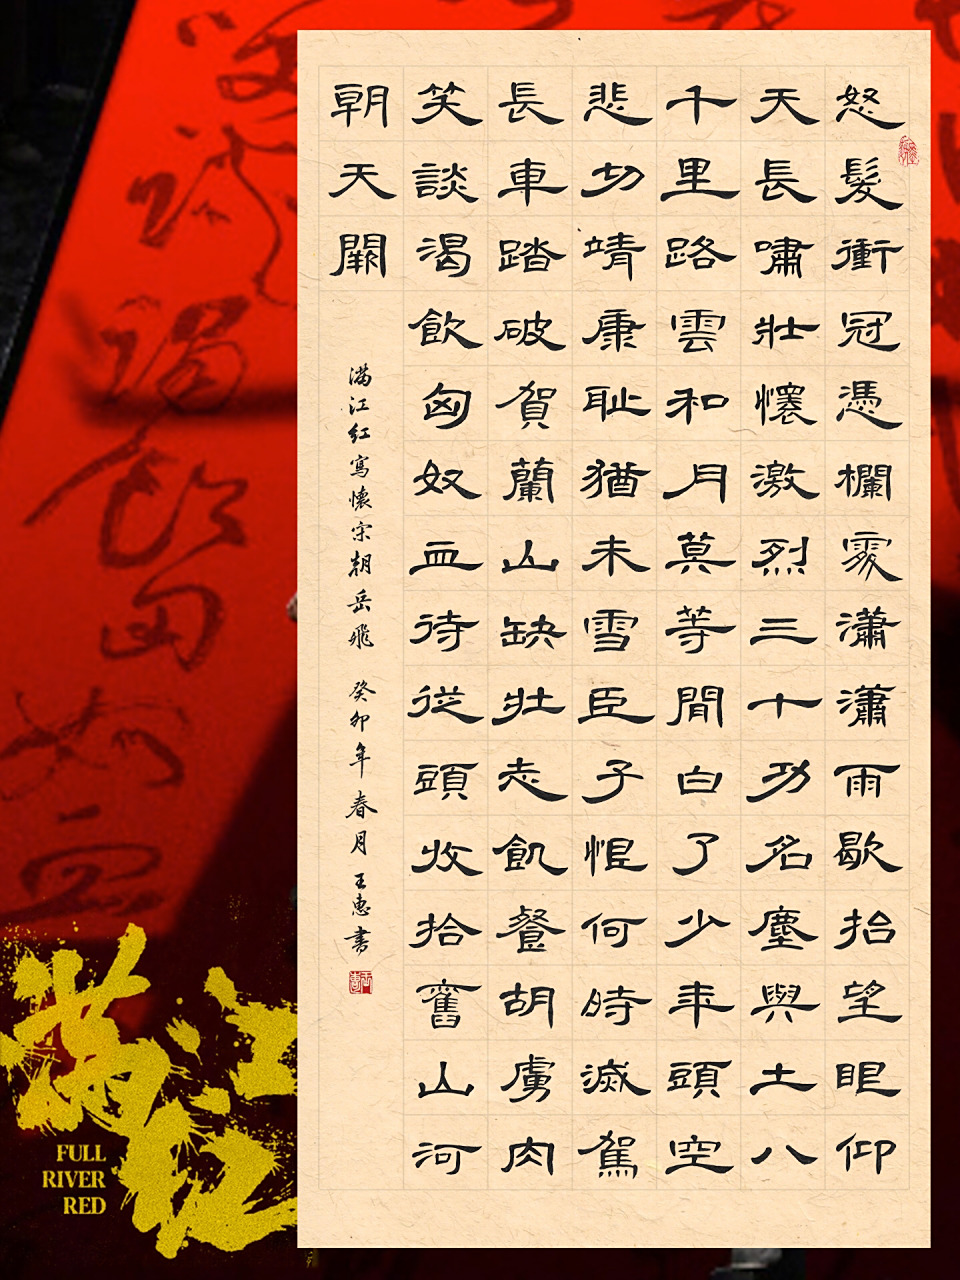 怒髮衝冠憑欄處瀟瀟雨歇抬望眼仰
天長嘯壯懷激烈三十功名塵與土八
千里路雲和月莫等閒白了少年頭空
悲切靖康耻猶未雪臣子恨何時滅駕
長車踏破賀蘭山缺壯志飢餐胡虜肉
笑談渴飲匈奴血待從頭收拾舊山河
朝天闕
滿江紅寫懷宋朝岳飛 癸卯年春月王惠書
談渴飲匈奴血
满江红
FULL
RIVER
RED